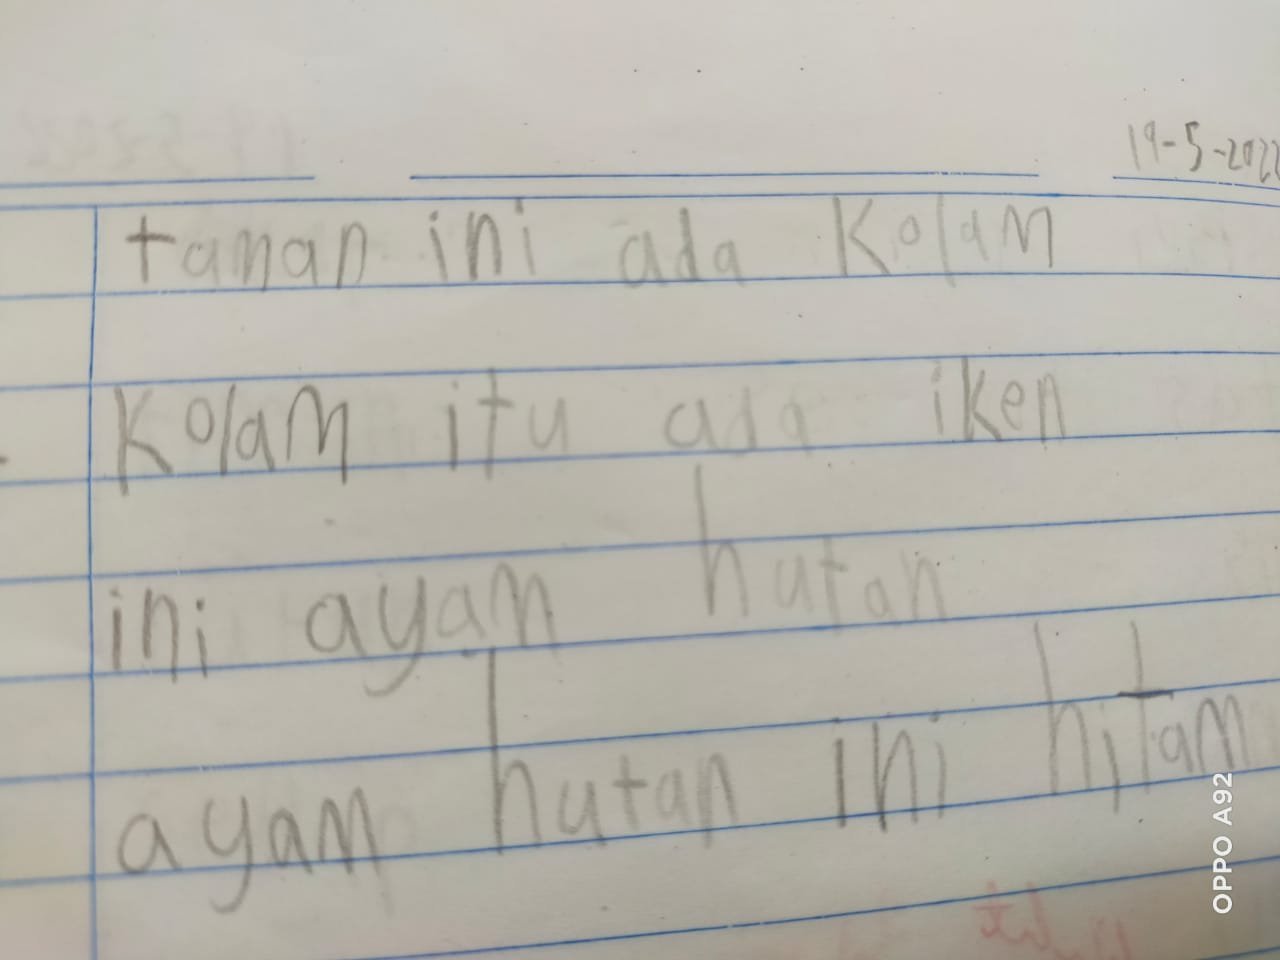 19-5-2022
taman ini ada Kolam
Kolam itu ada iken
ini ayam hutan
ayam hutan ini hitam
OPPO A92